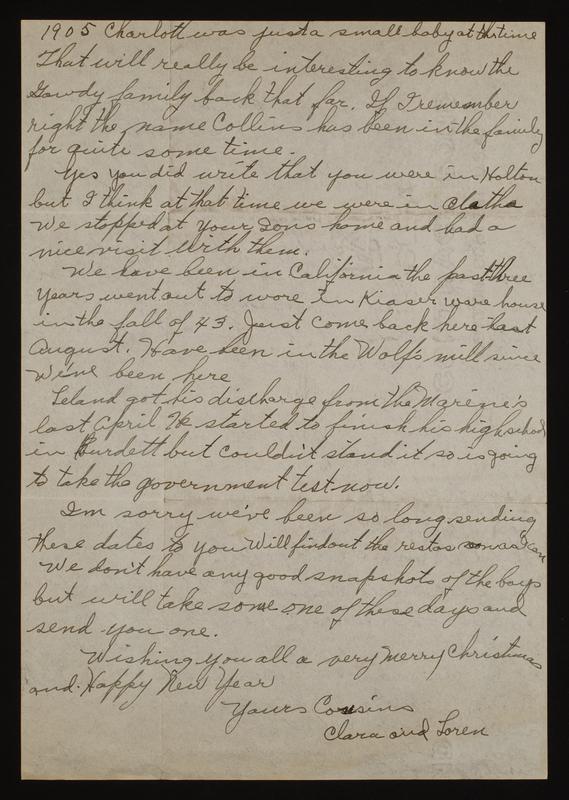 1905 Charlott was just a small baby at this time
That will really be interesting to know the
Gowdy family back that far. If I remember
right the name Collins has been in the family
for quite some time.
Yes you did write that you were in Holton
but I think at that time we were in Olatha
We stopped at your Sons home and had a
nice visit with them.
We have been in California the past three
years went out to wore in Kiaser ware house
in the fall of 43. Just come back here last
August. Have been in the Wolf's mill since
We've been here
Leland got his discharge from the Marine's
last April He started to finish his high school
in Burdett but couldn't stand it so is going
to take the government test now.
I'm sorry we've been so long sending
these dates to you Will find out the rest as soon as I can
We don't have any good snapshots of the boys
but will take some one of these days and
send you one.
Wishing you all a very Merry Christmas
and Happy New Year
Yours Cousins
Clara and Loren